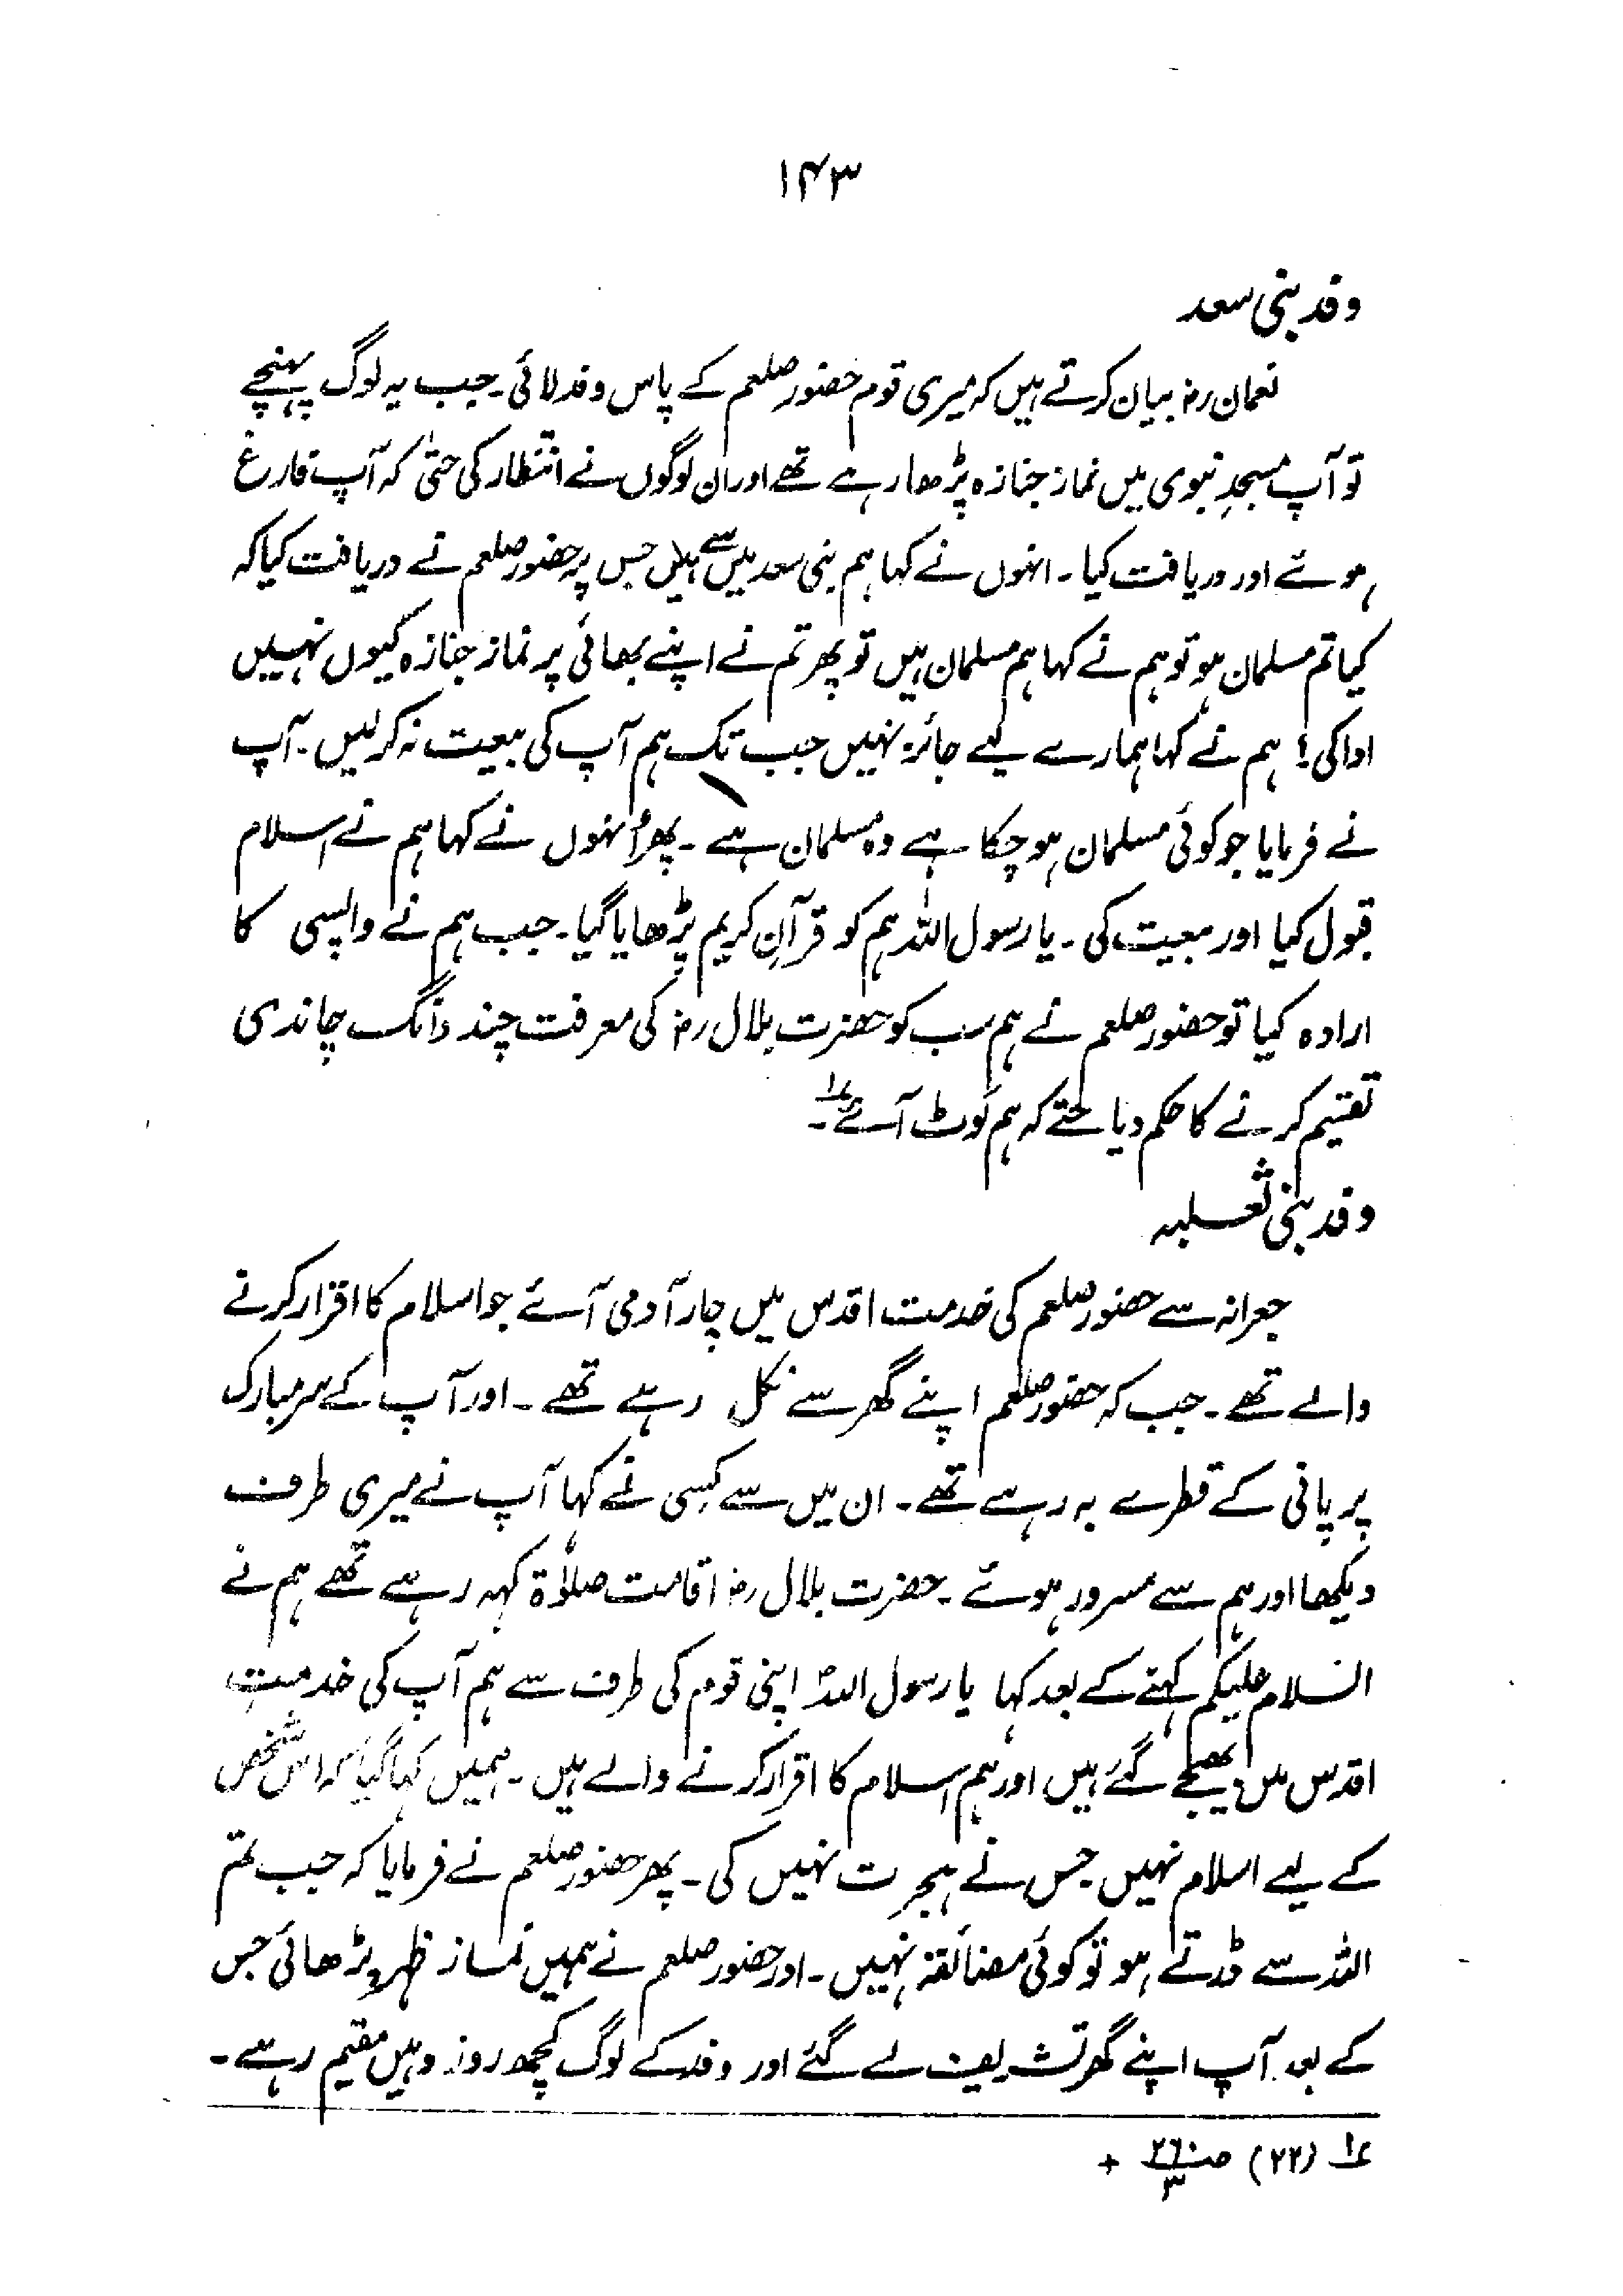 ۱۴۳
وفد بنی سعد
نعمان رض بیان کرتے ہیں کہ میری قوم حضور صلعم کے پاس وفد لائی۔ جب یہ لوگ پہنچے
تو آپ مسجدِ نبوی میں نماز جنازہ پڑھا رہے تھے اور ان لوگوں نے انتظار کی حتیٰ کہ آپ فارغ
ہوئے اور دریافت کیا۔ انہوں نے کہا ہم بنی سعد میں سے ہیں جس پر حضور صلعم نے دریافت کیا کہ
کیا تم مسلمان ہو تو ہم نے کہا ہم مسلمان ہیں تو پھر تم نے اپنے بھائی پر نماز جنازہ کیوں نہیں
ادا کی؟ ہم نے کہا ہمارے لیے جائز نہیں جب تک ہم آپ کی بیعت نہ کر لیں۔ آپ
نے فرمایا جو کوئی مسلمان ہو چکا ہے وہ مسلمان ہے۔ پھر اُنہوں نے کہا ہم نے اسلام
قبول کیا اور بیعت کی۔ یا رسول اللہ ہم کو قرآنِ کریم پڑھایا گیا۔ جب ہم نے واپسی کا
ارادہ کیا تو حضور صلعم نے ہم سب کو حضرت بلال رض کی معرفت چند دانگ چاندی
تقسیم کرنے کا حکم دیا حتے کہ ہم لوٹ آئے۔ ؏۱
وفد بنی ثعلبہ
جعرانہ سے حضور صلعم کی خدمت اقدس میں چار آدمی آئے جو اسلام کا اقرار کرنے
والے تھے۔ جب کہ حضور صلعم اپنے گھر سے نکل رہے تھے۔ اور آپ کے سر مبارک
پر پانی کے قطرے بہ رہے تھے۔ ان میں سے کسی نے کہا آپ نے میری طرف
دیکھا اور ہم سے مسرور ہوئے۔ حضرت بلال رض اقامت صلوٰۃ کہہ رہے تھے ہم نے
السلام علیکم کہنے کے بعد کہا یا رسول اللہؐ اپنی قوم کی طرف سے ہم آپ کی خدمتِ
اقدس میں بھیجے گئے ہیں اور ہم اسلام کا اقرار کرنے والے ہیں۔ ہمیں کہا گیا کہ اس شخص
کے لیے اسلام نہیں جس نے ہجرت نہیں کی۔ پھر حضور صلعم نے فرمایا کہ جب تم
اللہ سے ڈرتے ہو تو کوئی مضائقہ نہیں۔ اور حضور صلعم نے ہمیں نماز ظہر پڑھائی جس
کے بعد آپ اپنے گھر تشریف لے گئے اور وفد کے لوگ کچھ روز وہیں مقیم رہے۔
؏۱ (۲۲) صـ ۲۶۰/۳ +